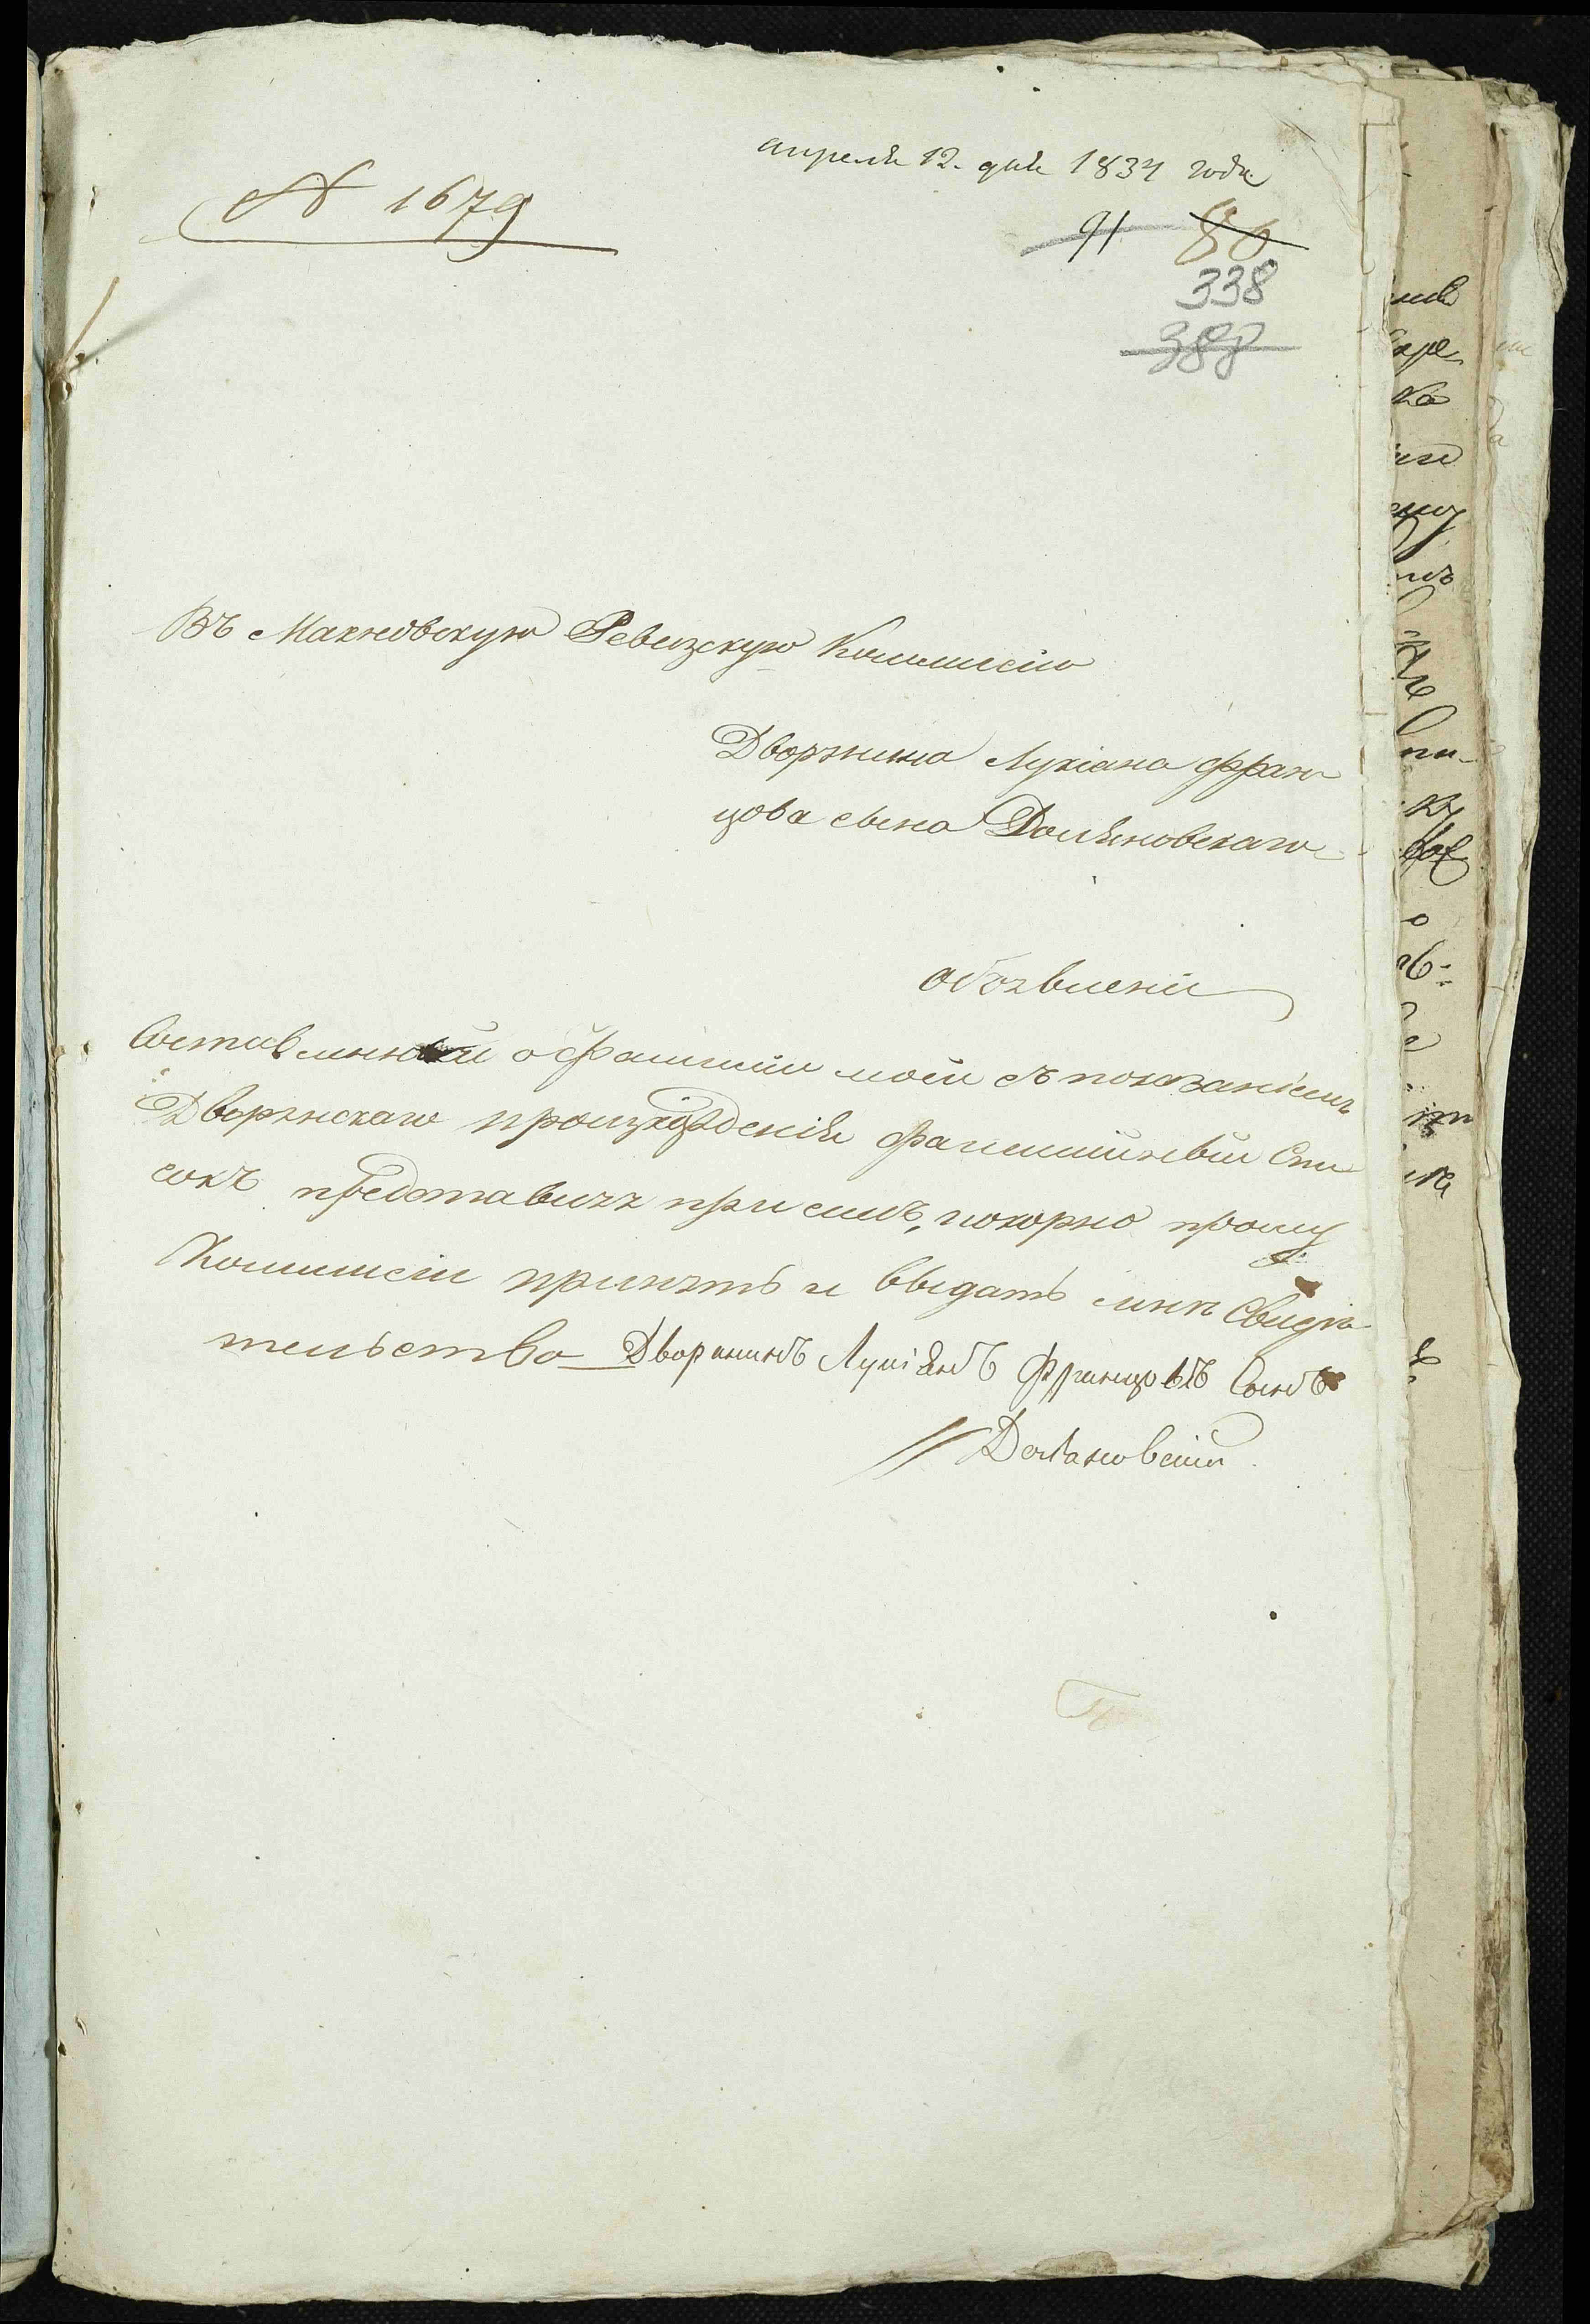 апреля 12. дня 1834 года
№ 1679
91 86
338
388
Въ Махновскую Ревизскую Коммисію
Дворянина Лукіана Фран
цова сына Доляновскаго
Обоявленіе
Составленный о фамиліи моей съ показаніемъ
Дворянскаго произхожденія фамилійный Спи
сокъ представляя при семъ, покорно прошу
Коммисіи принять и выдать мнѣ Свидѣ
тельство Дворянинъ Лукіянъ Францовъ Сынъ
Доляновскій